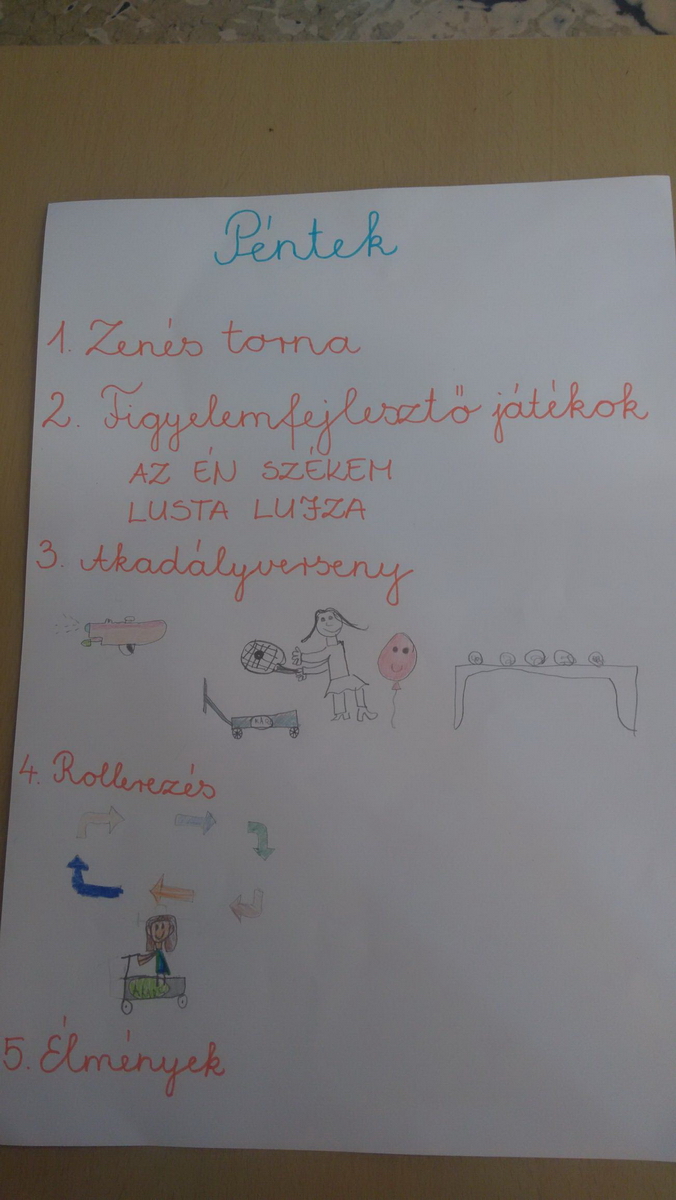 Péntek
1. Zenés torna
2. Figyelemfejlesztő játékok
AZ ÉN SZÉKEM
LUSTA LUJZA
3. Akadályverseny
4. Rollerezés
5. Élmények